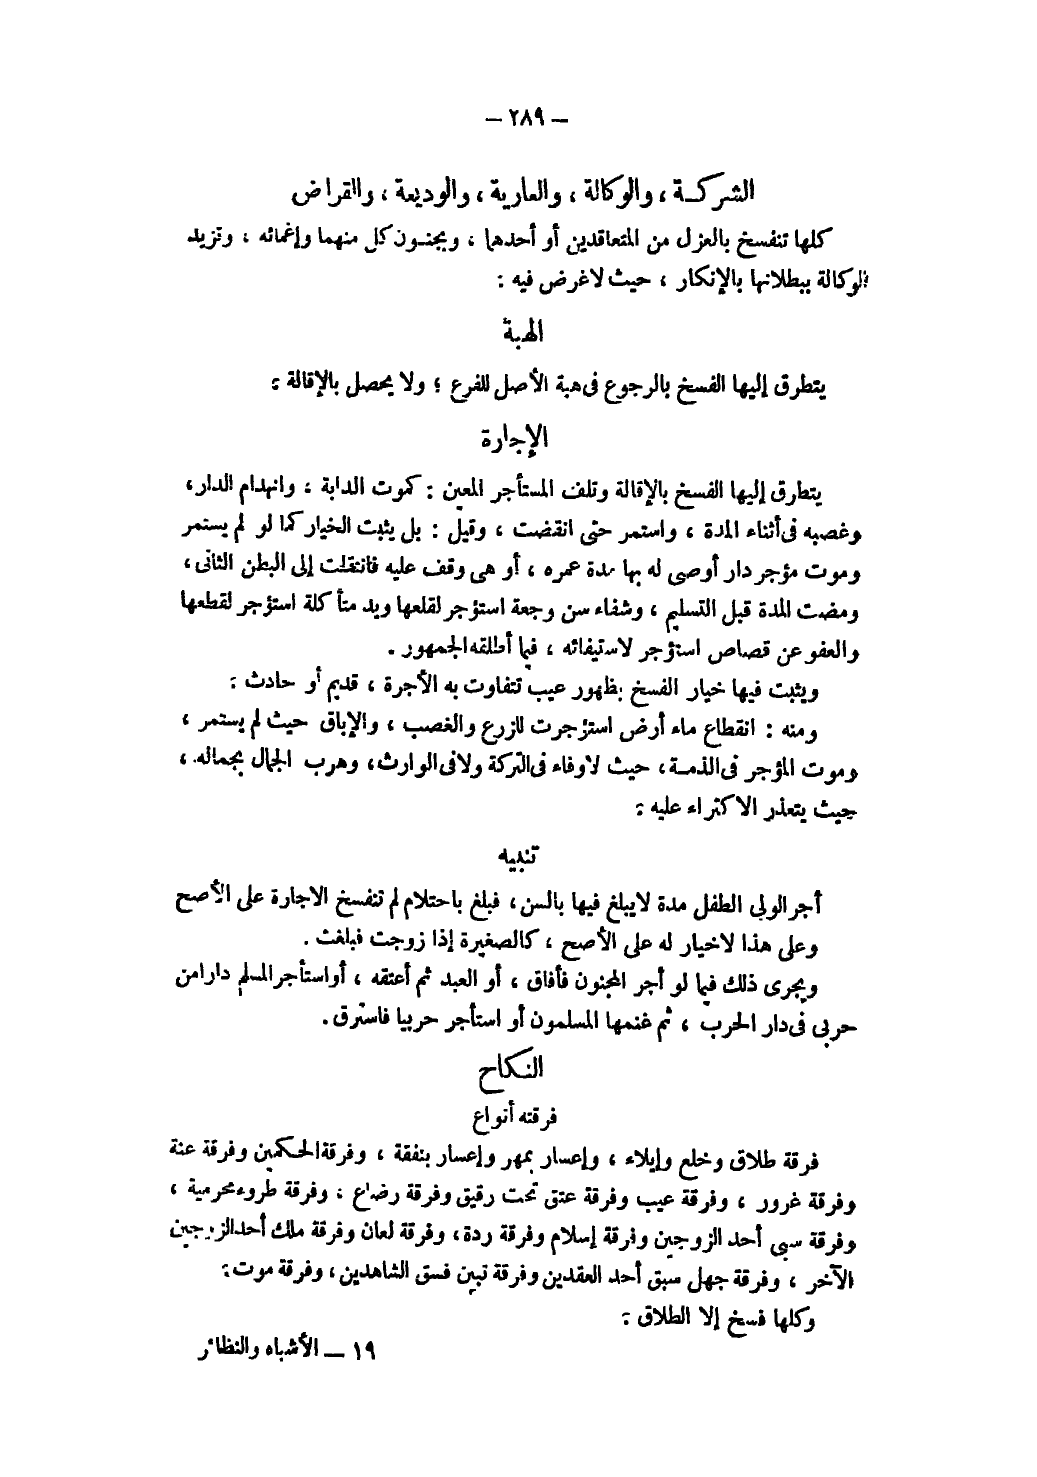 — ٢٨٩ —
الشركة ، والوكالة ، والعارية ، والوديعة ، والقراض
كلها تنفسخ بالعزل من المتعاقدين أو أحدهما ، وبجنون كل منهما وإغمائه ، وتزيد
الوكالة ببطلانها بالإنكار ، حيث لا غرض فيه :
الهبة
يتطرق إليها الفسخ بالرجوع فى هبة الأصل للفرع ؛ ولا يحصل بالإقالة :
الإجارة
يتطرق إليها الفسخ بالإقالة وتلف المستأجر المعين : كموت الدابة ، وانهدام الدار ،
وغصبه فى أثناء المدة ، واستمر حتى انقضت ، وقيل : بل يثبت الخيار كما لو لم يستمر
وموت مؤجر دار أوصى له بها مدة عمره ، أو هى وقف عليه فانتقلت إلى البطن الثانى ،
ومضت المدة قبل التسليم ، وشفاء سن وجعة استؤجر لقلعها ويد متأكلة استؤجر لقطعها
والعفو عن قصاص استؤجر لاستيفائه ، فيما أطلقه الجمهور .
ويثبت فيها خيار الفسخ بظهور عيب تتفاوت به الأجرة ، قديم أو حادث :
ومنه : انقطاع ماء أرض استؤجرت للزرع والغصب ، والإباق حيث لم يستمر ،
وموت المؤجر فى الذمة ، حيث لا وفاء فى التركة ولا فى الوارث ، وهرب الجمال بجماله ،
حيث يتعذر الاكتراء عليه :
تنبيه
أجر الولى الطفل مدة لا يبلغ فيها بالسن ، فبلغ باحتلام لم تنفسخ الاجارة على الأصح
وعلى هذا لاخيار له على الأصح ، كالصغيرة إذا زوجت فبلغت .
ويجرى ذلك فيما لو أجر المجنون فأفاق ، أو العبد ثم أعتقه ، أو استأجر المسلم دارا من
حربى فى دار الحرب ، ثم غنمها المسلمون أو استأجر حربيا فاسترق .
النكاح
فرقته أنواع
فرقة طلاق وخلع وإيلاء ، وإعسار بمهر وإعسار بنفقة ، وفرقة الحكمين وفرقة عنة
وفرقة غرور ، وفرقة عيب وفرقة عتق تحت رقيق وفرقة رضاع ، وفرقة طروء محرمية ،
وفرقة سبى أحد الزوجين وفرقة إسلام وفرقة ردة ، وفرقة لعان وفرقة ملك أحد الزوجين
الآخر ، وفرقة جهل سبق أحد العقدين وفرقة تبين فسق الشاهدين ، وفرقة موت :
وكلها فسخ إلا الطلاق :
١٩ — الأشباه والنظائر